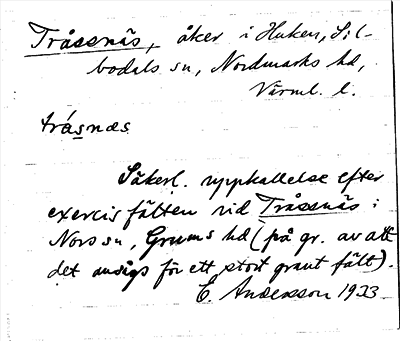 Tråssnäs, åker i Huken, Sil-
bodals sn, Nordmarks hd,
Värml. l.
tråsnæs
Säkerl. uppkallelse efter
exercisfälten vid Tråssnäs i
Nors sn, Grums hd (på gr. av att
det ansågs för ett stort grant fält).
E. Andersson 1933